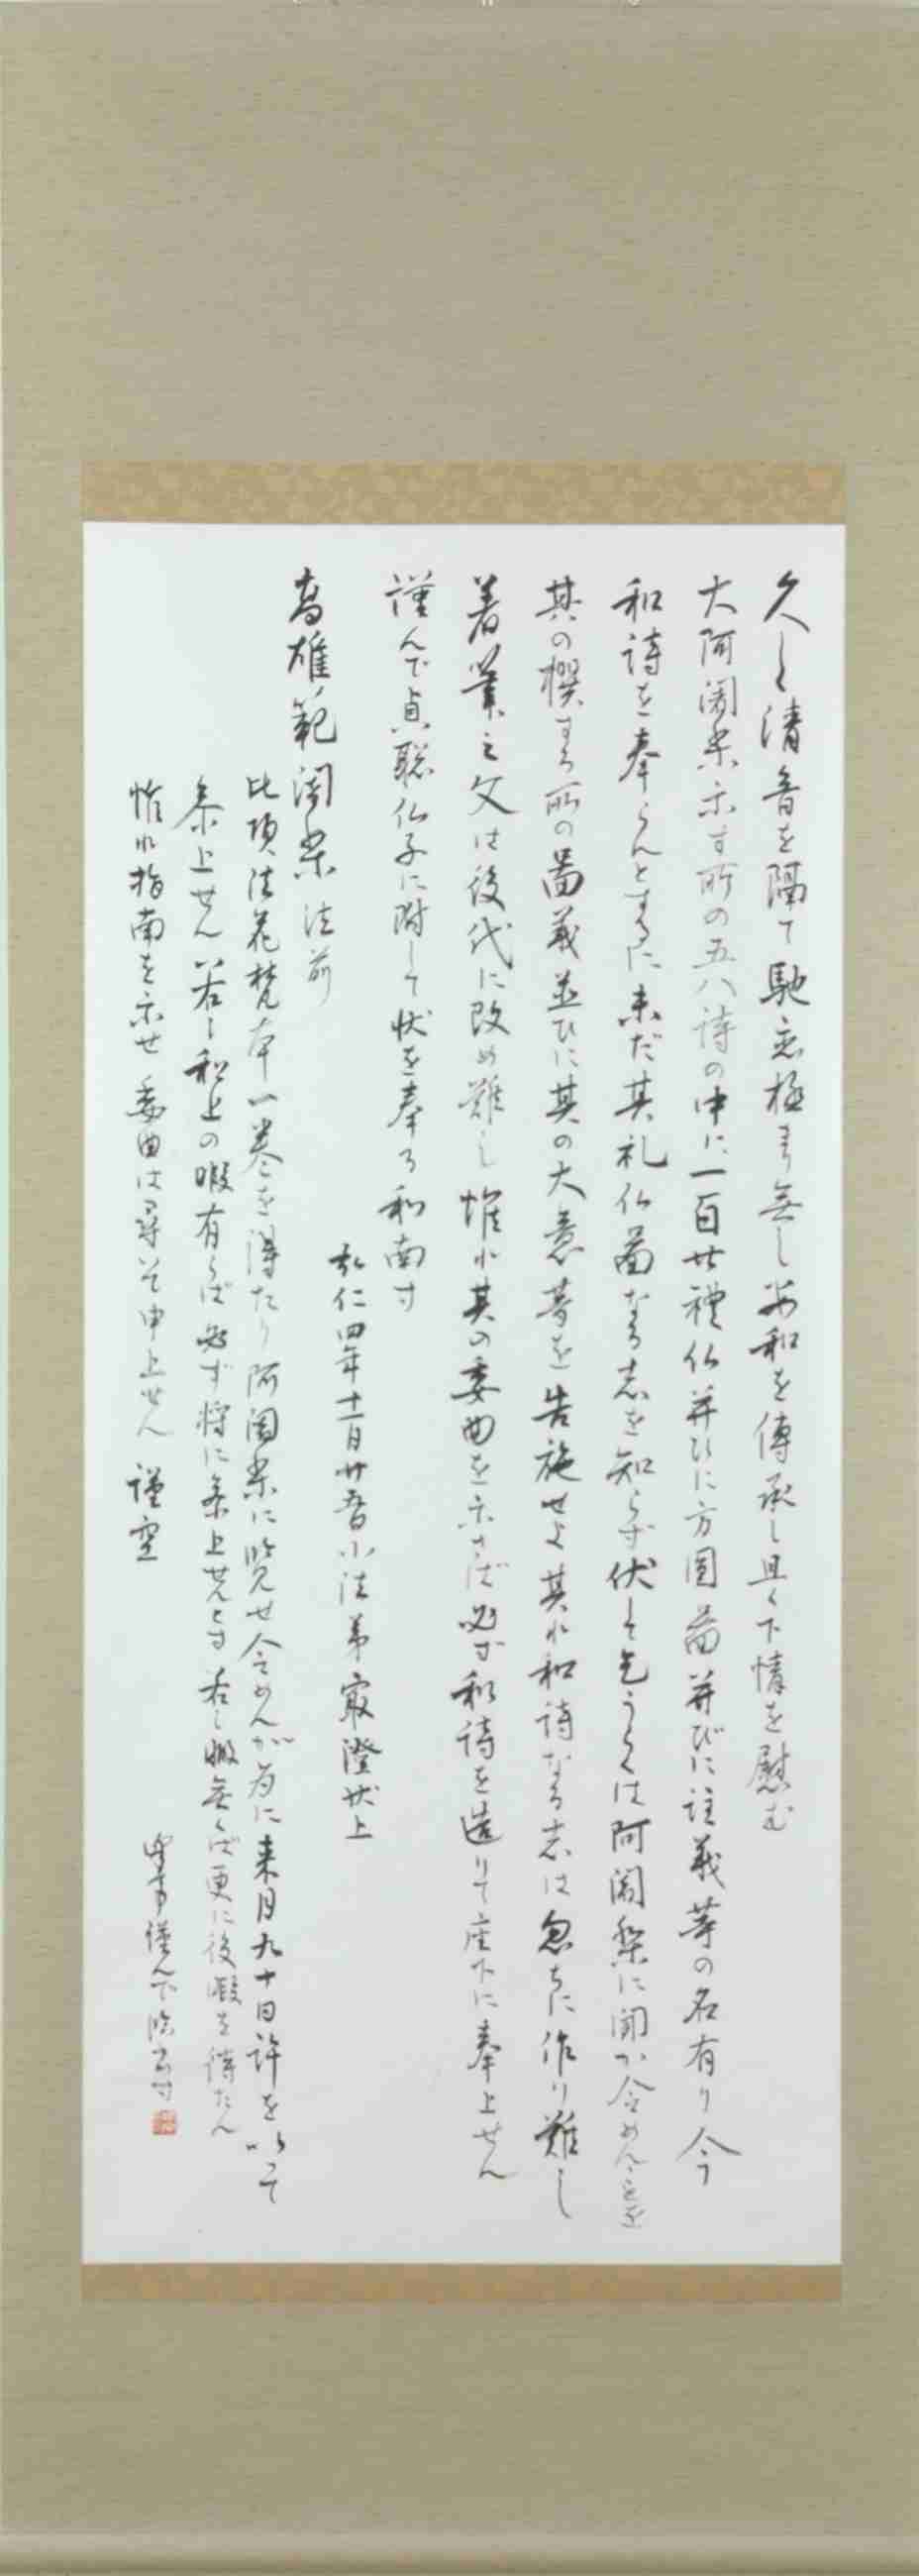 久しく清音を隔て馳恋極まり無し安和を傳承し且く下情を慰む
大阿闍梨示す所の五八詩の中に一百廿禮仏并びに方圓啚并びに註義等の名有り今
和詩を奉らんとするに未だ其礼仏啚なる志を知らず伏して乞うらくは阿闍梨に聞か令めんことを
其の撰する所の啚義並びに其の大意等を告施せよ其れ和詩なる志は忽ちに作り難し
着筆之文は後代に改め難し惟れ其の委曲を示さば必ず和詩を造りて座下に奉上せん
謹んで貞聡仏子に附して状を奉る和南す
弘仁四年十一月廿五日小法弟最澄状上
高雄範闍梨法前
比頃法花梵本一巻を得たり阿闍梨に覧せ令めんが為に来月九十日許を以って
参上せん若し和上の暇有らば必ず将に参上せんとす若し暇無くば更に後暇を待たん
惟れ指南を示せ委曲は尋いで申上せん謹空
謹んで臨書す